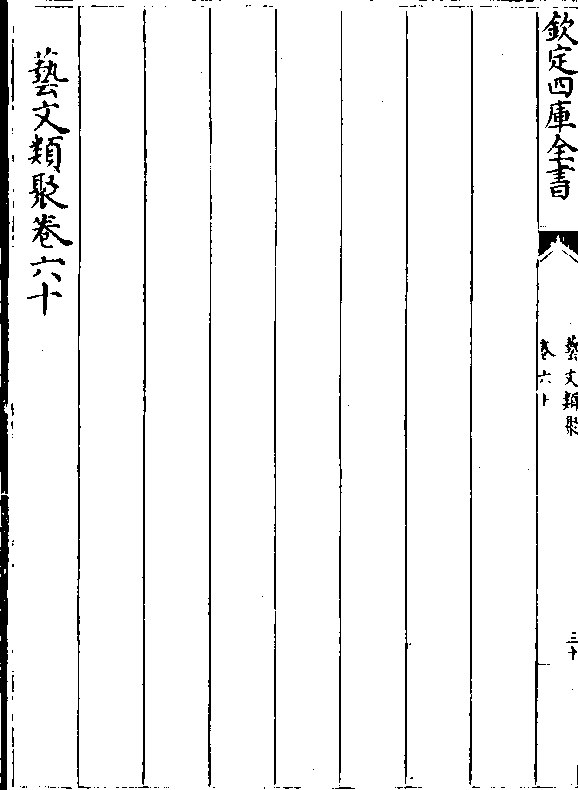 欽定四庫全書
藝文類聚
卷六十
三十
藝文類聚卷六十